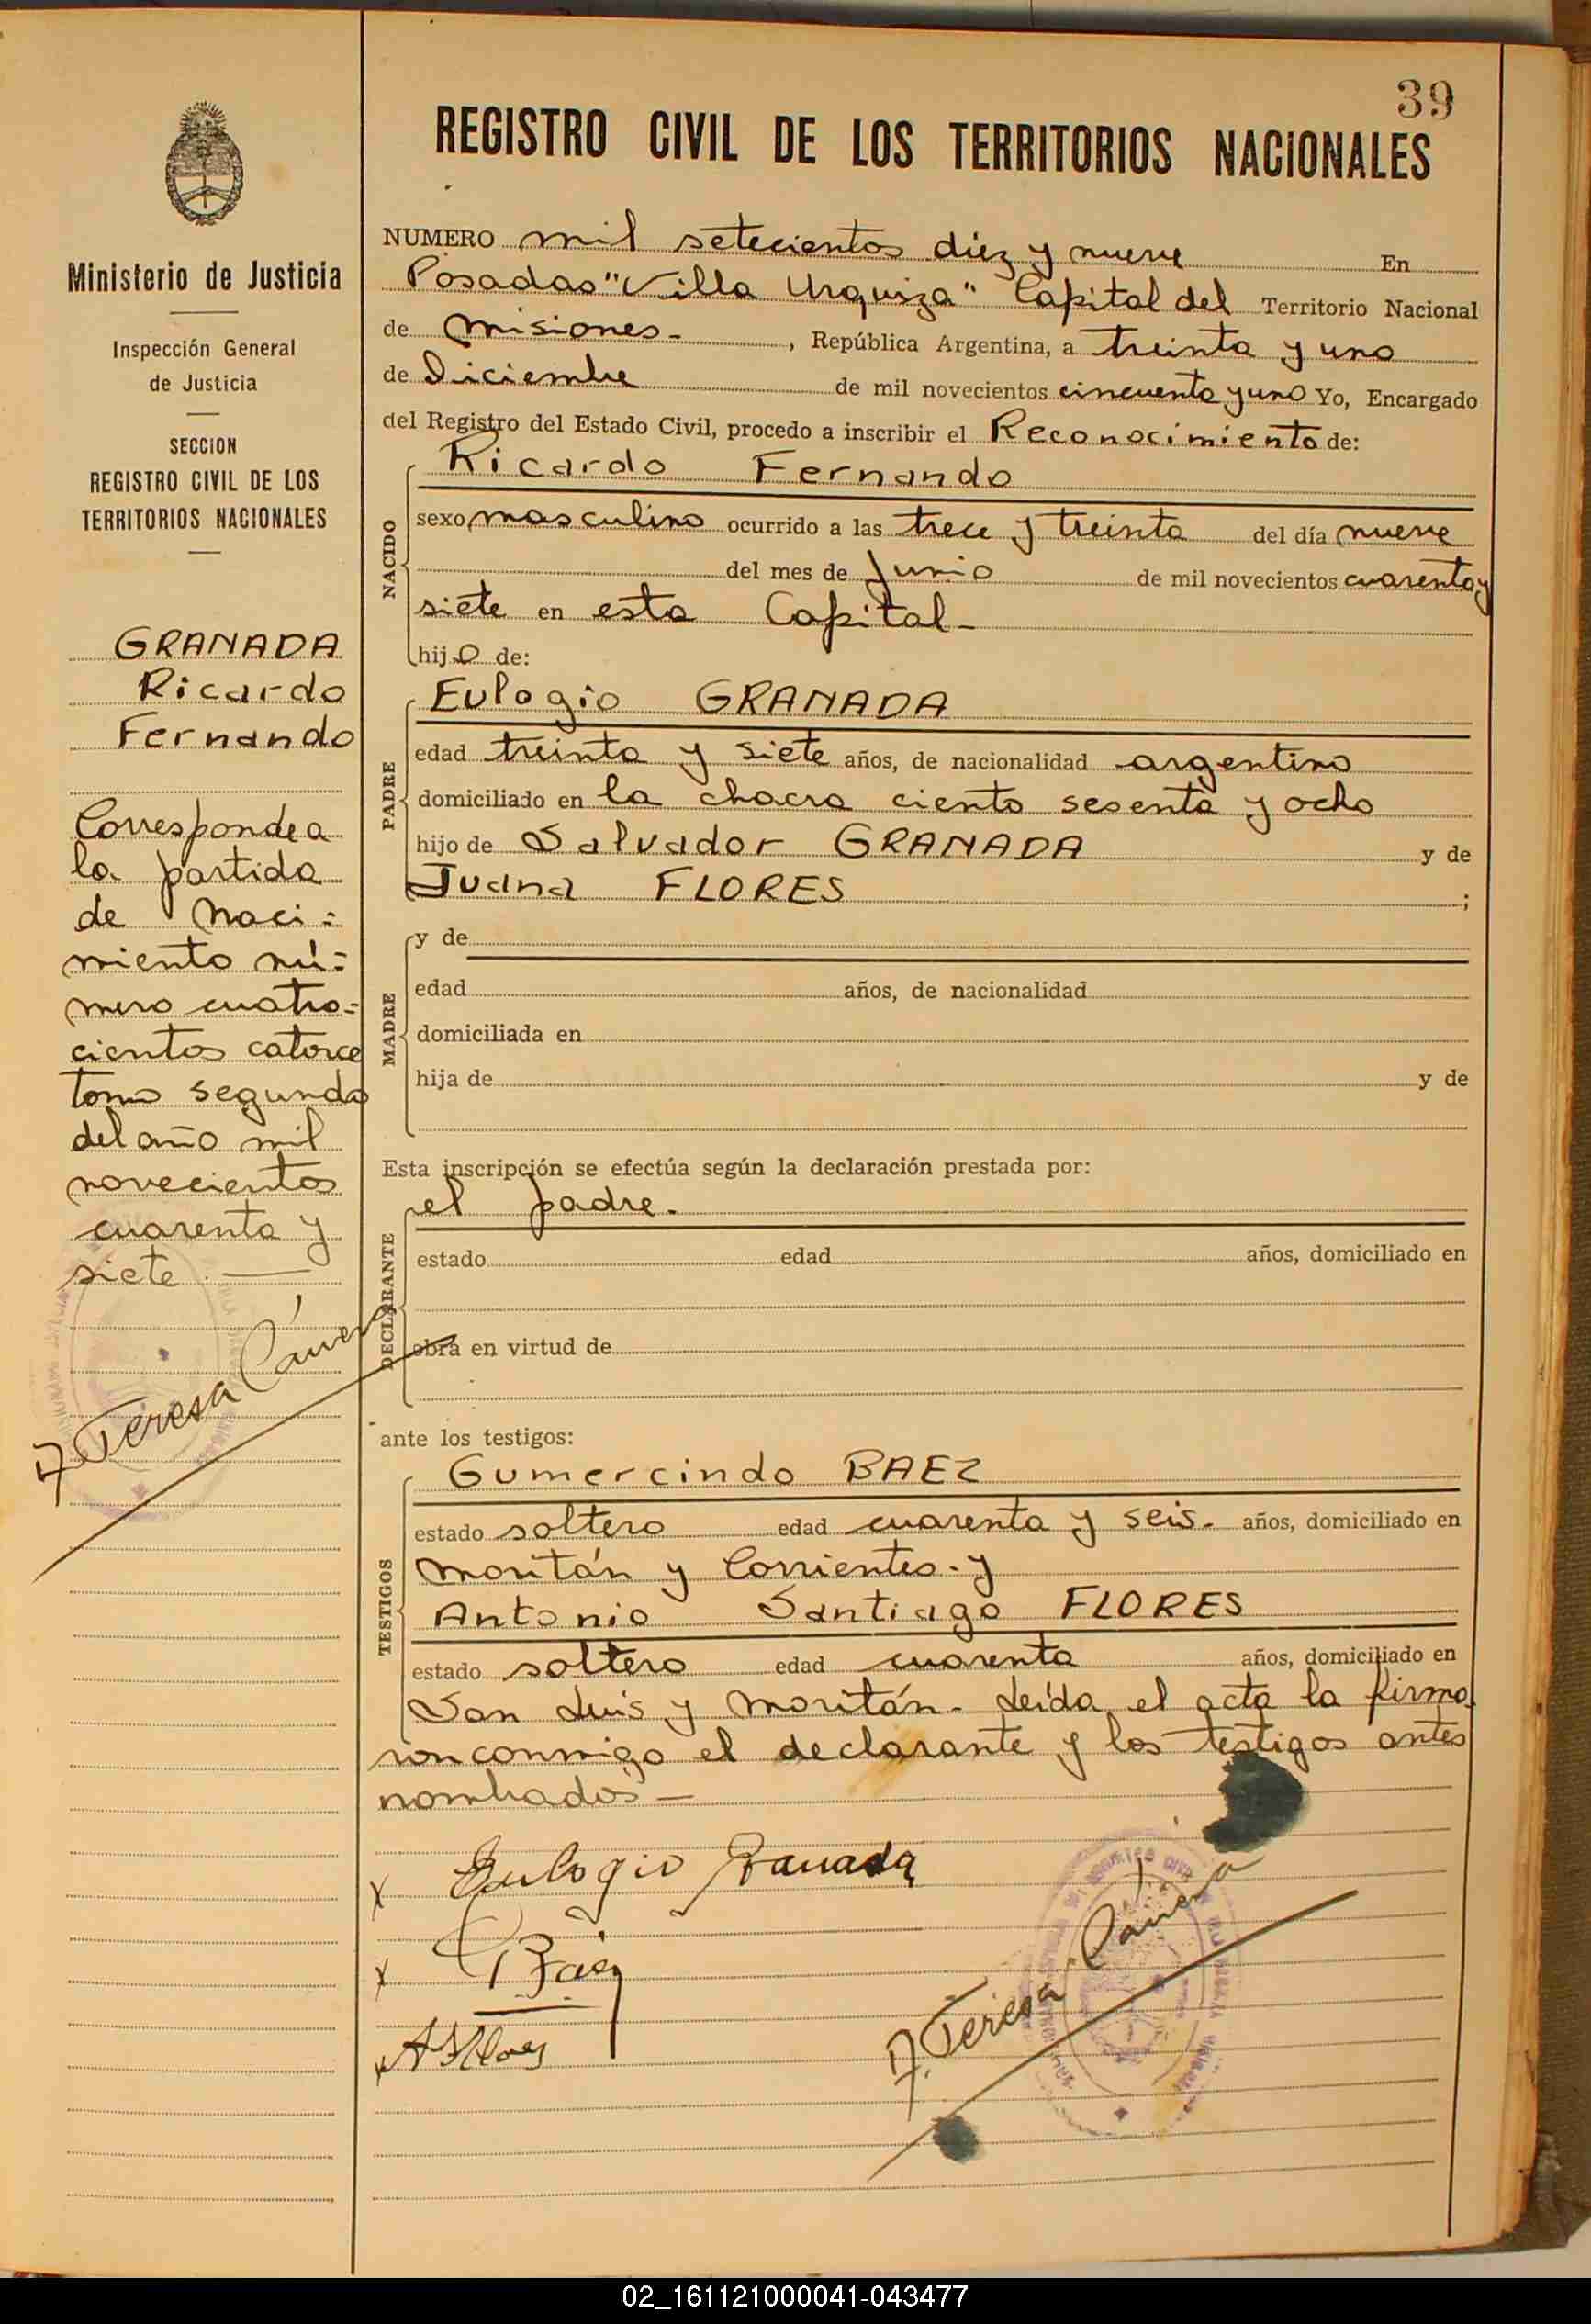 39
REGISTRO CIVIL DE LOS TERRITORIOS NACIONALES
Ministerio de Justicia
Inspección General
de Justicia
SECCION
REGISTRO CIVIL DE LOS
TERRITORIOS NACIONALES
GRANADA
Ricardo
Fernando
Corresponde a
la partida
de naci=
miento nú=
mero cuatro=
cientos catorce
tomo segundo
del año mil
novecientos
cuarenta y
siete.
NUMERO mil setecientos diez y nueve En
Posadas "Villa Urquiza" Capital del Territorio Nacional
de Misiones.- , República Argentina, a treinta y uno
de Diciembre de mil novecientos cincuenta y uno Yo, Encargado
del Registro del Estado Civil, procedo a inscribir el Reconocimiento de:
NACIDO
Ricardo Fernando
sexo masculino ocurrido a las trece y treinta del día nueve
del mes de Junio de mil novecientos cuarenta y
siete en esta Capital-
hijo de:
PADRE
Eulogio GRANADA
edad treinta y siete años, de nacionalidad argentino
domiciliado en la chacra ciento sesenta y ocho
hijo de Salvador GRANADA y de
Juana FLORES ;
MADRE
y de
edad años, de nacionalidad
domiciliada en
hija de y de
Esta inscripción se efectúa según la declaración prestada por:
DECLARANTE
el padre.
estado edad años, domiciliado en
obra en virtud de
ante los testigos:
TESTIGOS
Gumercindo BAEZ
estado soltero edad cuarenta y seis. años, domiciliado en
Moritán y Corrientes.- y
Antonio Santiago FLORES
estado soltero edad cuarenta años, domiciliado en
San Luis y Moritán.- Leída el acta la firma-
ron conmigo el declarante y los testigos antes
nombrados-
x Eulogio Granada
x G Baez
x A S Flores
02_161121000041-043477